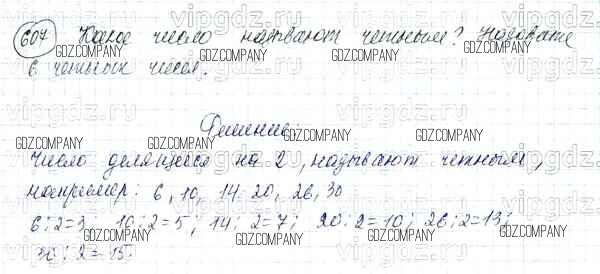 607 Какое число называют четным? Назовите
6 четных чисел.
Решение:
Число делящееся на 2, называют четным,
например: 6, 10, 14, 20, 26, 30
6:2=3; 10:2=5; 14:2=7; 20:2=10; 26:2=13;
30:2=15.